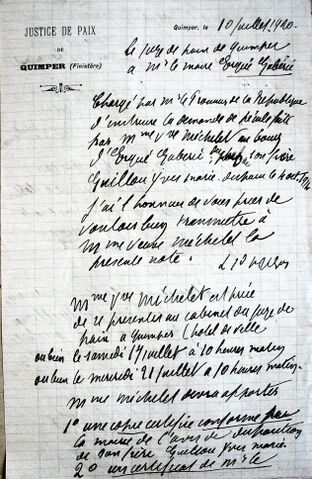 JUSTICE DE PAIX
DE
QUIMPER (Finistère)
Quimper, le 10 juillet 1920.
Le juge de paix de Quimper
à Mr le maire Ergué Gabéric
Chargé par Mr le Procureur de la République
d'instruire la demande de décès faite
par Mme Vve Michelet au bourg
d'Ergué Gabéric son frère
Guillou Yves Marie disparu le
j'ai l'honneur de vous prier de
vouloir bien transmettre à
Mme Veuve Michelet la
présente note.
Mme Vve Michelet est priée
de se présenter au cabinet du juge de
paix à Quimper (hôtel de ville
ou bien le samedi 17 juillet à 10 heures matin
ou bien le mercredi 21 juillet à 10 heures matin.
Mme Michelet devra apporter
1° une copie certifiée conforme par
la mairie de l'avis de disparition
de son frère Guillou Yves Marie.
2° un certificat de Mr le